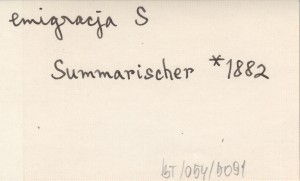 emigracja S
Summarischer *1882
IST/054/5091